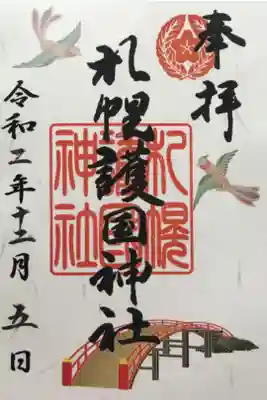 奉拝
札幌護国神社
札幌護国神社
令和二年十二月五日